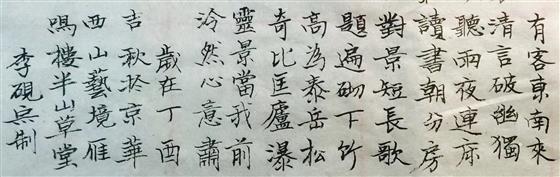 有客東南來
清言破幽獨
聽雨夜連床
讀書朝分房
對景短長歌
題遍砌下竹
高為泰岳松
奇比匡廬瀑
靈景當我前
泠然心意肅
歲在丁酉
吉秋於京華
西山藝境雁
鳴樓半山草堂
李硯